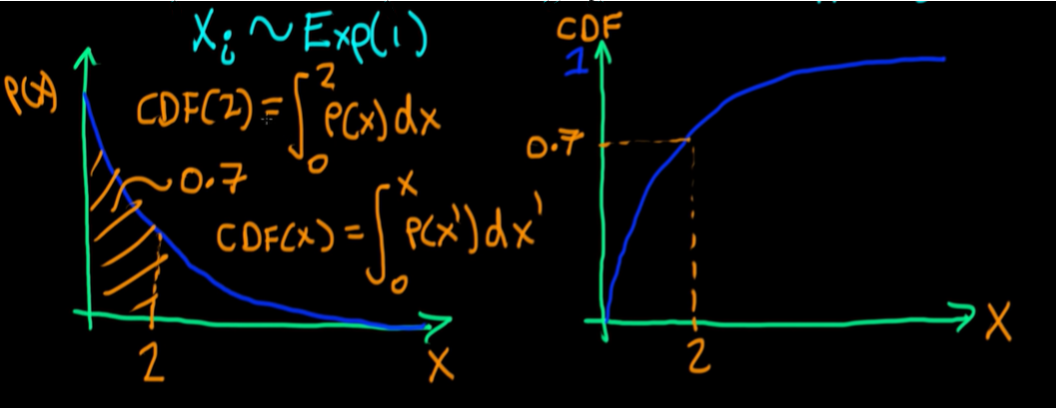 Xᵢ ~ Exp(1)
P(x)
CDF(2) = ∫₀² P(x) dx
0.7
CDF(x) = ∫₀ˣ P(x') dx'
2
X
CDF
1
0.7
2
X